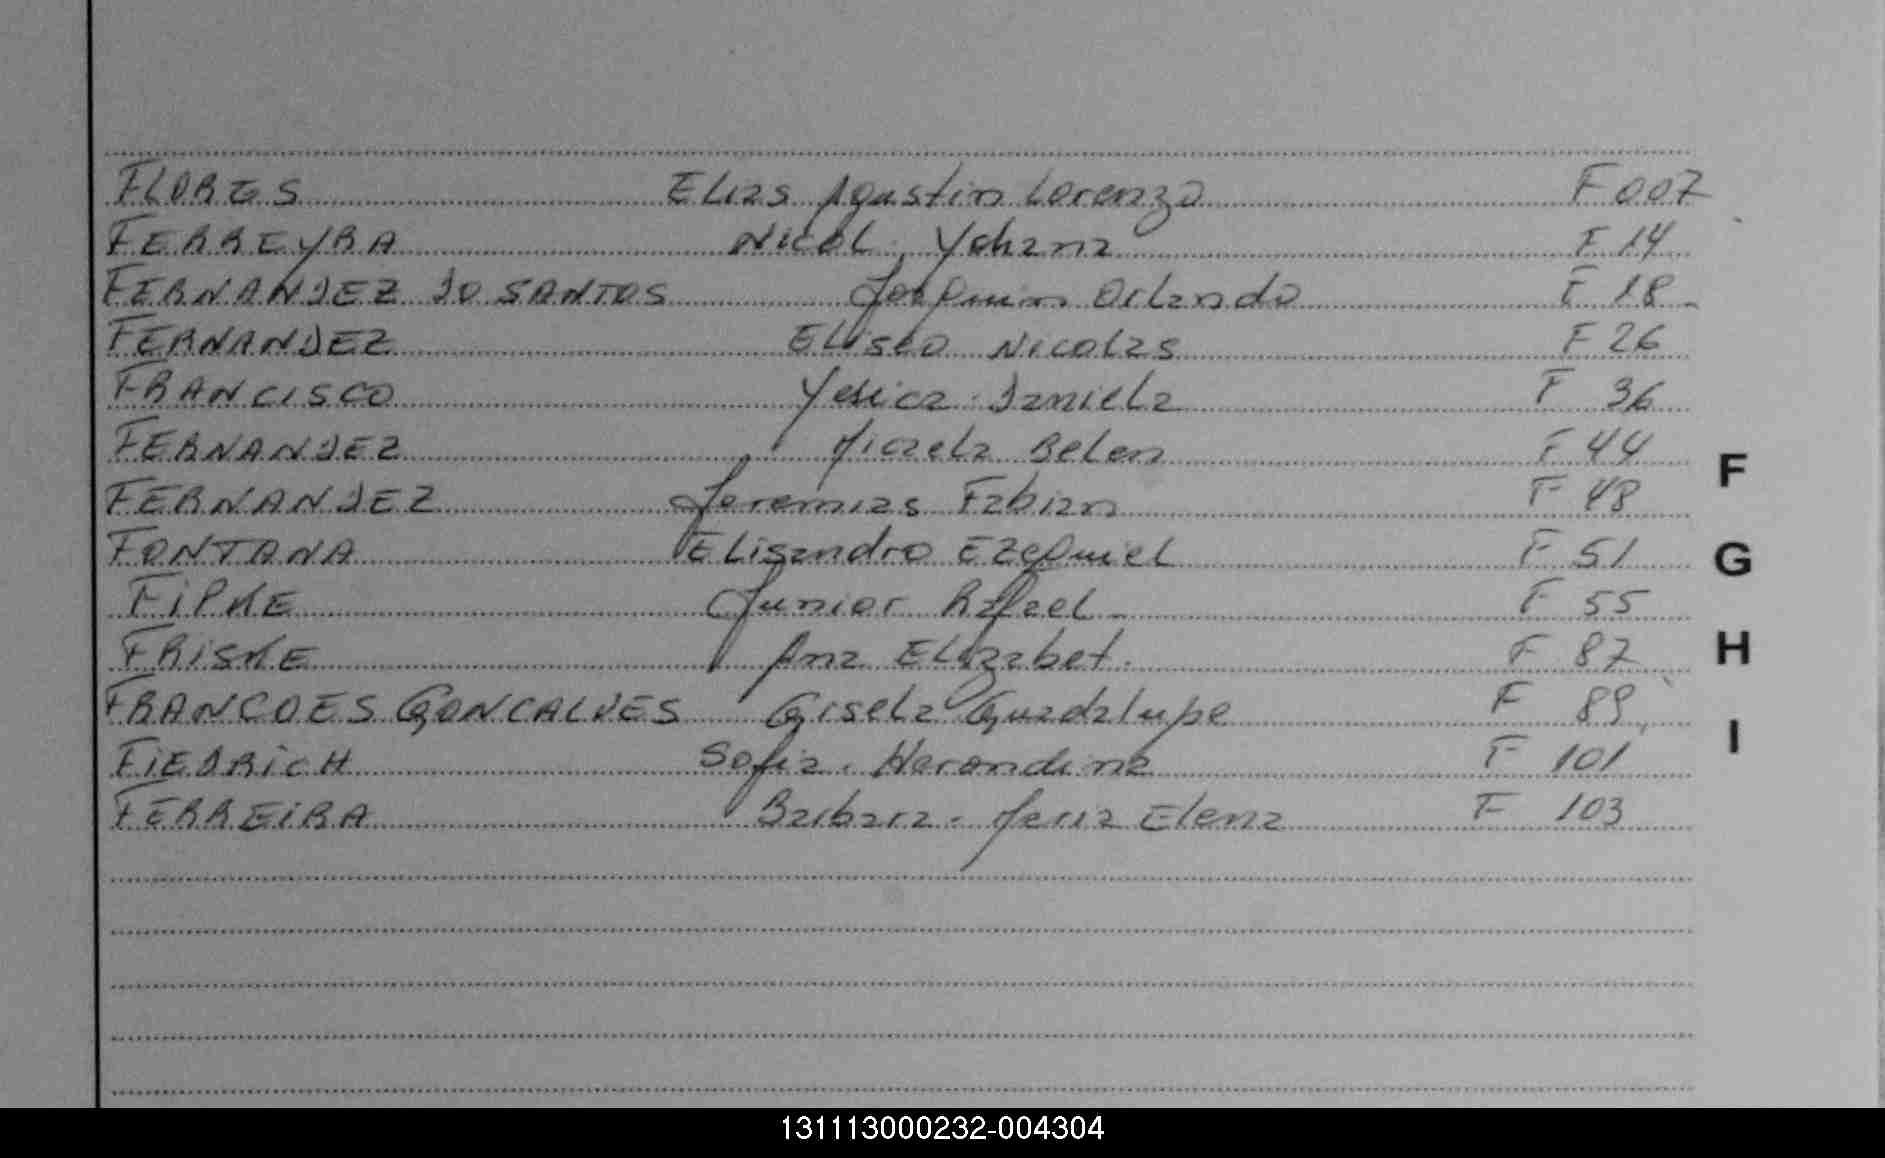 FLORES Elias Agustin Lorenzo F 007
FERREYRA Nicol Yohana F 14
FERNANDEZ DO SANTOS Joaquin Orlando F 18
FERNANDEZ Eliseo Nicolas F 26
FRANCISCO Yesica Daniela F 36
FERNANDEZ Micaela Belen F 44
FERNANDEZ Jeremias Fabian F 48
FONTANA Elisandro Ezequiel F 51
FIPKE Junior Rafael F 55
FRISKE Ana Elizabet. F 87
FRANCOES GONCALVES Gisela Guadalupe F 89
FIEDRICH Sofia. F 101
FERREIRA Barbara. Maria Elena F 103
F
G
H
I
131113000232-004304